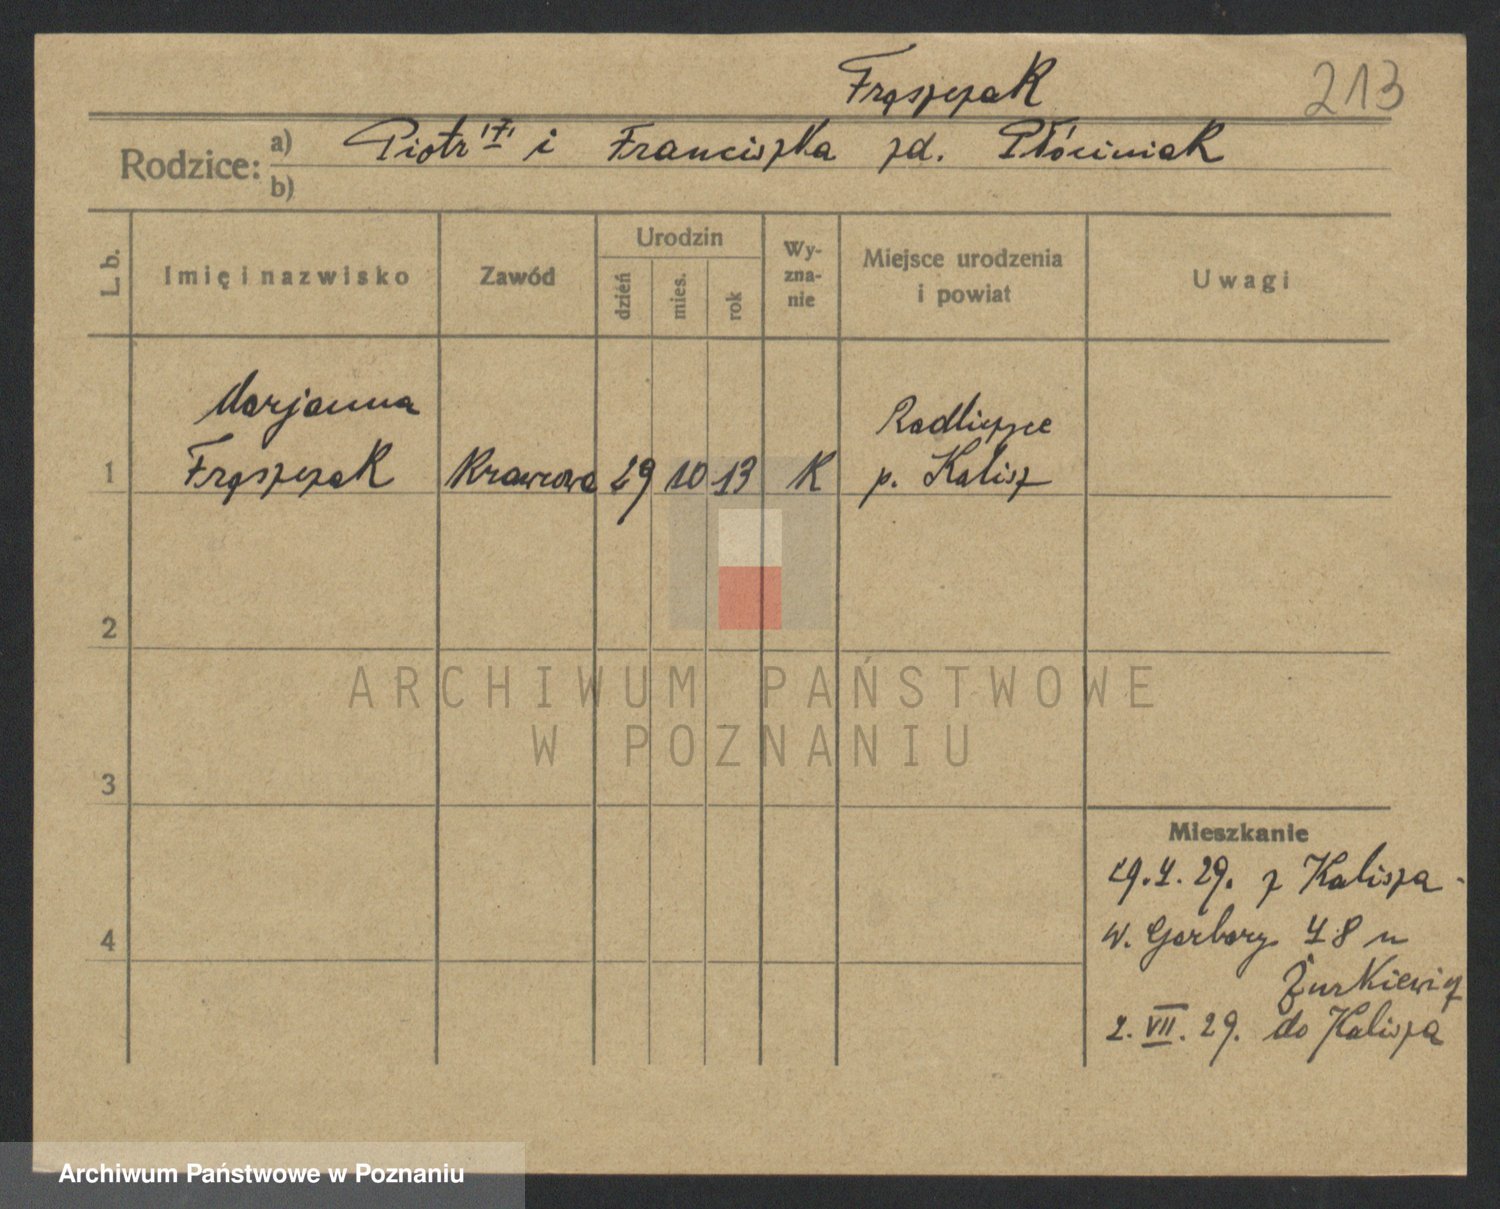 Frąszczak 213
Rodzice: a) Piotr "†" i Franciszka zd. Płóciniak
b)
L. b. Imię i nazwisko Zawód Urodzin dzień mies. rok Wy-zna-nie Miejsce urodzenia i powiat Uwagi
Marjanna Radliczyce
1 Frąszczak Krawcowa 29 10 13 K p. Kalisz
2
ARCHIWUM PAŃSTWOWE
W POZNANIU
3
Mieszkanie
29. 4. 29. z Kalisza -
4 w. Garbary 48 u
Żurkiewicz
2. VII. 29. do Kalisza
Archiwum Państwowe w Poznaniu